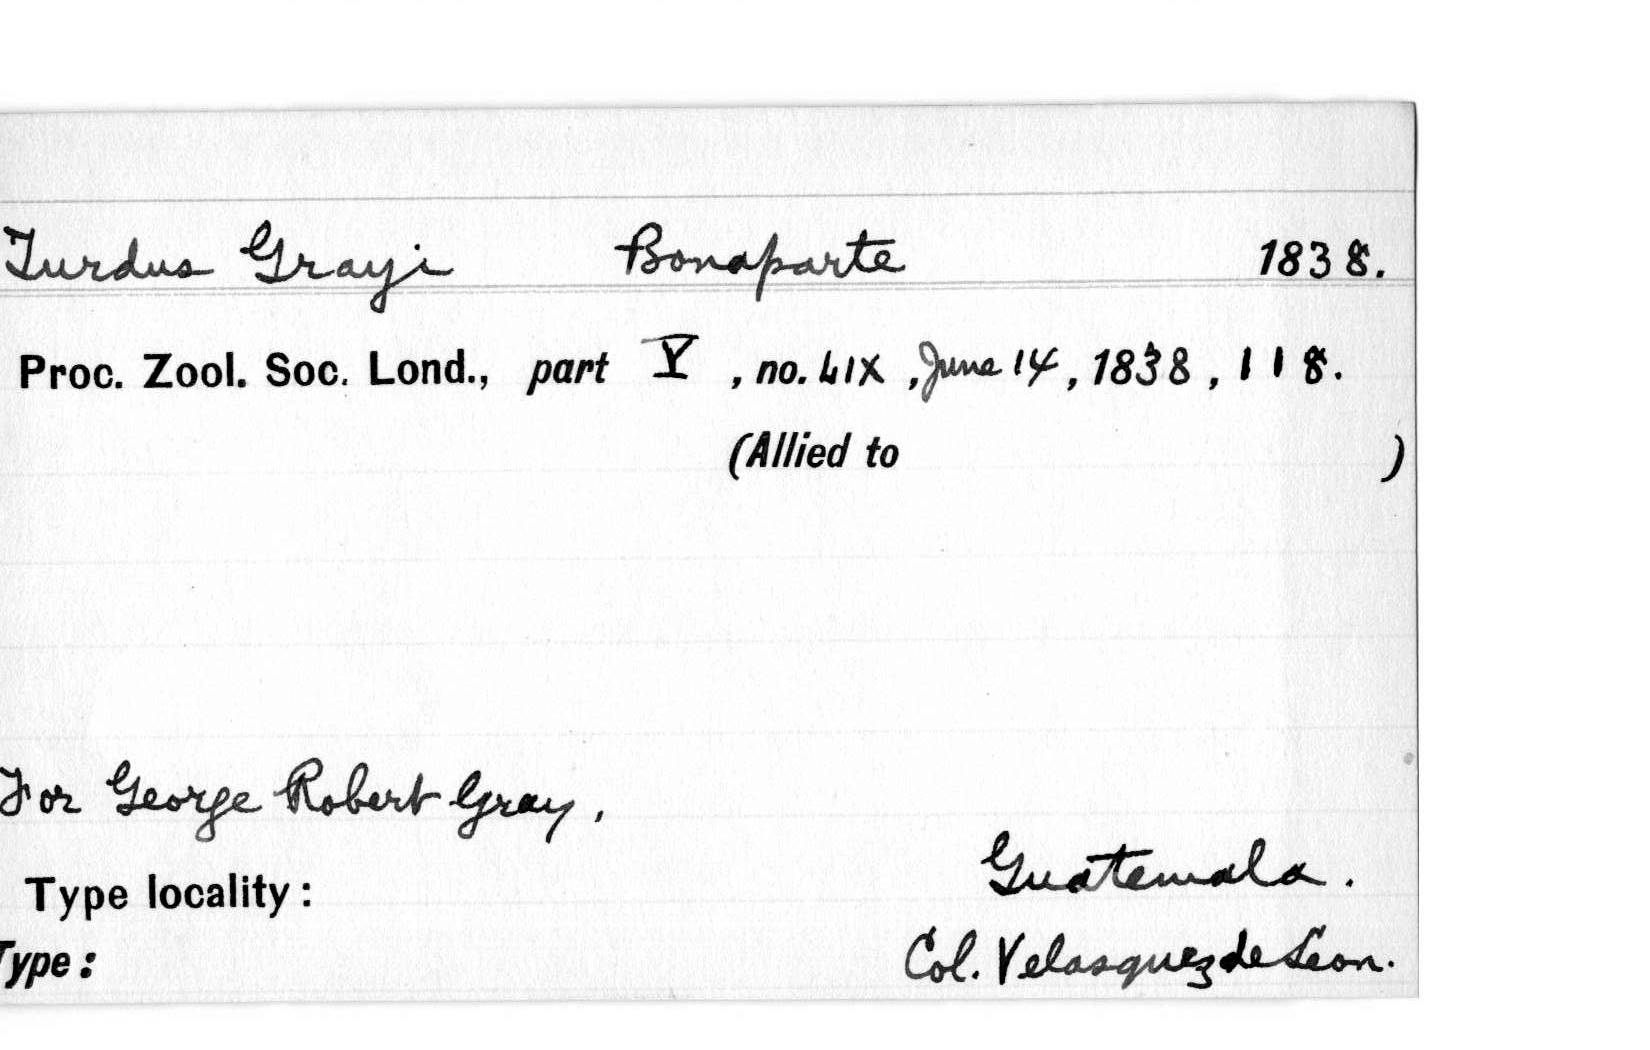 Turdus Grayi Bonaparte 1838.
Proc. Zool. Soc. Lond., part V, no. LIX, June 14, 1838, 118.
(Allied to )
For George Robert Gray,
Guatemala.
Type locality:
Type: Col. Velasquez de Leon.